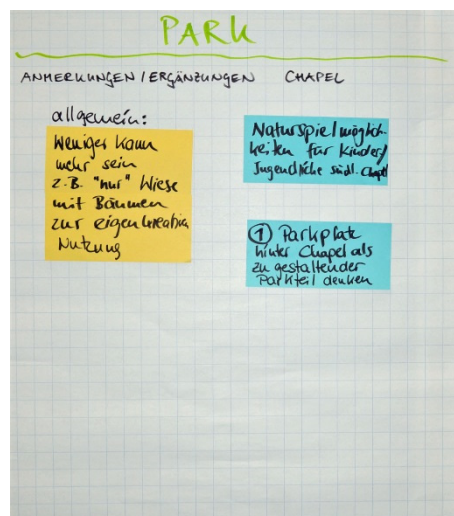 PARK
ANMERKUNGEN / ERGÄNZUNGEN CHAPEL
allgemein:
Weniger kann
mehr sein
z.B. "nur" Wiese
mit Bäumen
zur eigenkreativen
Nutzung
Naturspielmöglich-
keiten für Kinder/
Jugendliche südl. Chapel
① Parkplatz
hinter Chapel als
zu gestaltender
Parkteil denken